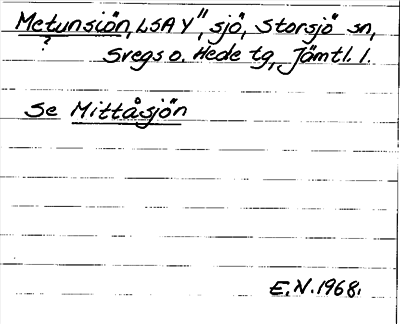 Metunsiön, LSA Y", sjö, Storsjö sn,
?
Svegs o. Hede tg, Jämtl. l.
Se Mittåsjön
E.N. 1968.